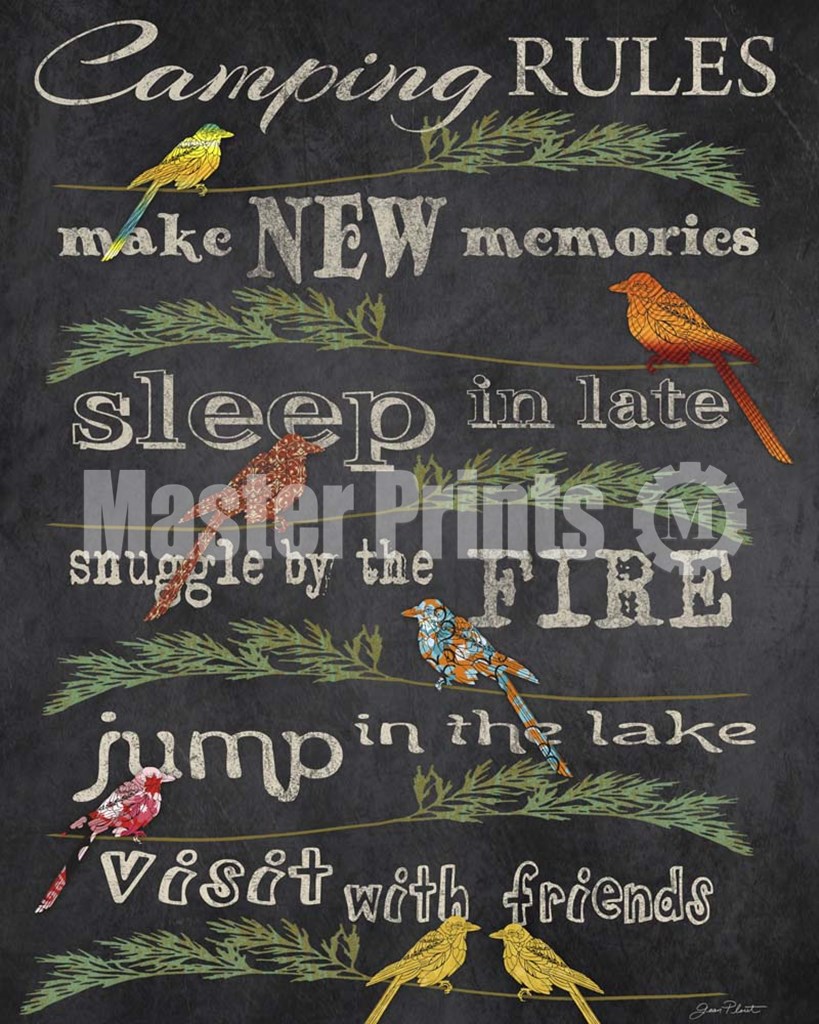 Camping RULES
make NEW memories
sleep in late
Master Prints M
snuggle by the FIRE
jump in the lake
visit with friends
Jean Plout